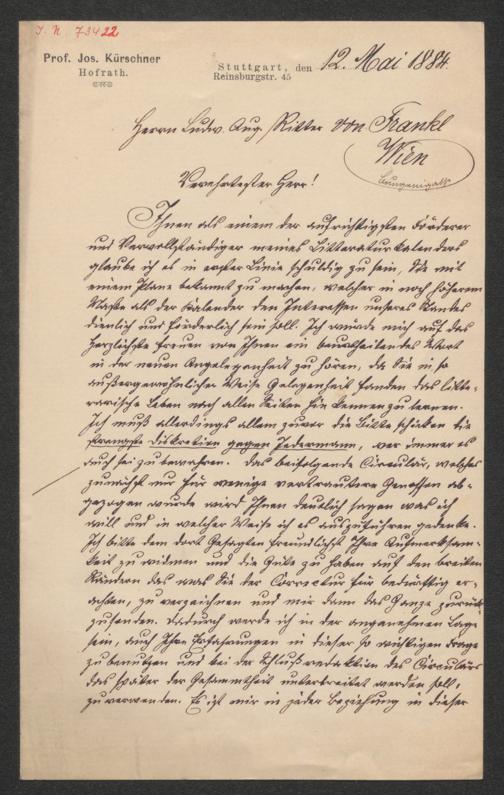 J. N. 73422
Prof. Jos. Kürschner
Hofrath.
Stuttgart, den 12. Mai 1884.
Reinsburgstr. 45
Herrn Ludw. Aug. Ritter von Frankl
Wien
Verehrtester Herr!
Ihnen als einem der aufrichtigsten Förderer
und Vervollständiger meines Litteraturkalenders
glaube ich es in erster Linie schuldig zu sein, Sie mit
einem Plane bekannt zu machen, welcher in noch höherem
Maße als der Kalender den Interessen unseres Standes
dienlich und förderlich sein soll. Ich würde mich auf das
herzlichste freuen von Ihnen ein beurtheilendes Wort
in der neuen Angelegenheit zu hören, da Sie in so
außergewöhnlicher Weise Gelegenheit fanden das litte-
rarische Leben nach allen Seiten hin kennen zu lernen.
Ich muß allerdings allem zuvor die Bitte schicken die
strengste Diskretion gegen Jedermann, wer immer es
auch sei zu bewahren. Das beifolgende Circulär, welches
zunächst nur für wenige vertrautere Genossen ab-
gezogen wurde wird Ihnen deutlich sagen was ich
will und in welcher Weise ich es auszuführen gedenke.
Ich bitte dem dort Gesagten freundlichst Ihre Aufmerksam-
keit zu widmen und die Güte zu haben auf den breiten
Rändern das was Sie der Correctur für bedürftig er-
achten, zu verzeichnen und mir dann das Ganze zurück
zusenden. Dadurch werde ich in der angenehmen Lage
sein, auch Ihre Erfahrungen in dieser so wichtigen Frage
zu benutzen und bei der Schlußredaktion des Circulärs
das später der Gesammtheit unterbreitet werden soll,
zu verwenden. Es ist mir in jeder Beziehung in dieser